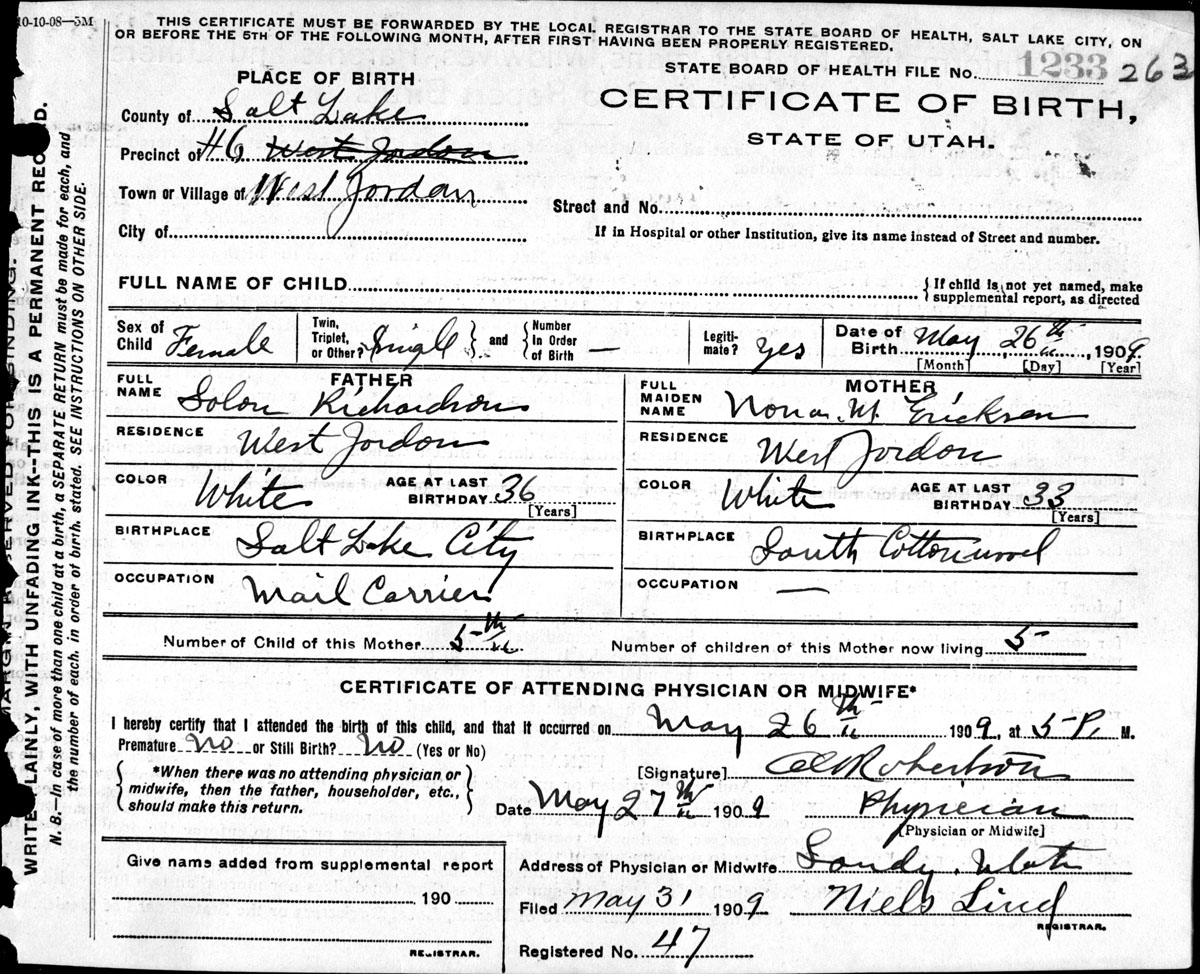 10-10-08—5M
THIS CERTIFICATE MUST BE FORWARDED BY THE LOCAL REGISTRAR TO THE STATE BOARD OF HEALTH, SALT LAKE CITY, ON
OR BEFORE THE 5TH OF THE FOLLOWING MONTH, AFTER FIRST HAVING BEEN PROPERLY REGISTERED.
STATE BOARD OF HEALTH FILE NO. 1233 263
CERTIFICATE OF BIRTH,
STATE OF UTAH.
PLACE OF BIRTH
County of Salt Lake
Precinct of #6 West Jordon
Town or Village of West Jordan
City of
Street and No.
If in Hospital or other Institution, give its name instead of Street and number.
FULL NAME OF CHILD
{If child is not yet named, make
supplemental report, as directed
Sex of Child Female
Twin, Triplet, or Other? Single } and { Number In Order of Birth —
Legitimate? yes
Date of Birth May 26th, 1909
[Month] [Day] [Year]
FATHER
FULL NAME Solon Richardson
RESIDENCE West Jordon
COLOR White AGE AT LAST BIRTHDAY 36
[Years]
BIRTHPLACE Salt Lake City
OCCUPATION Mail Carrier
MOTHER
FULL MAIDEN NAME Nona M Ericksen
RESIDENCE West Jordon
COLOR White AGE AT LAST BIRTHDAY 33
[Years]
BIRTHPLACE South Cottonwood
OCCUPATION —
Number of Child of this Mother 5th
Number of children of this Mother now living 5
CERTIFICATE OF ATTENDING PHYSICIAN OR MIDWIFE*
I hereby certify that I attended the birth of this child, and that it occurred on May 26th 1909, at 5 P. M.
Premature No or Still Birth? No (Yes or No)
{*When there was no attending physician or
midwife, then the father, householder, etc.,
should make this return.}
[Signature] Robertson
Date May 27th 1909 Physician
[Physician or Midwife]
Give name added from supplemental report
190
REGISTRAR.
Address of Physician or Midwife Sandy, Utah
Filed May 31 1909 Niels Lind
REGISTRAR.
Registered No. 47
MARGIN RESERVED FOR BINDING.
WRITE PLAINLY, WITH UNFADING INK--THIS IS A PERMANENT RECORD.
N. B.—In case of more than one child at a birth, a SEPARATE RETURN must be made for each, and
the number of each, in order of birth, stated. SEE INSTRUCTIONS ON OTHER SIDE.